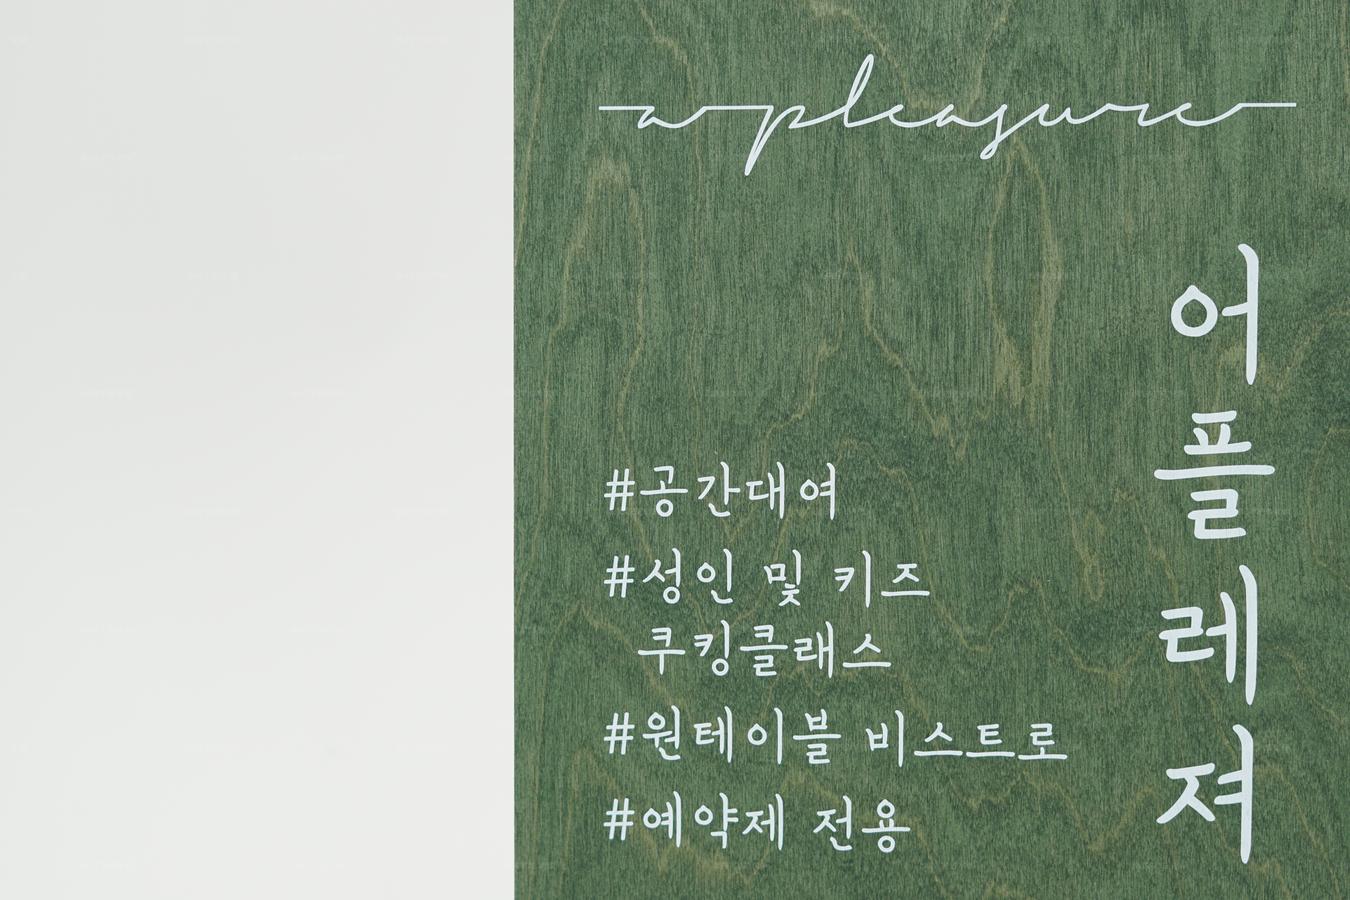 a pleasure
어플레져
#공간대여
#성인 및 키즈
쿠킹클래스
#원테이블 비스트로
#예약제 전용